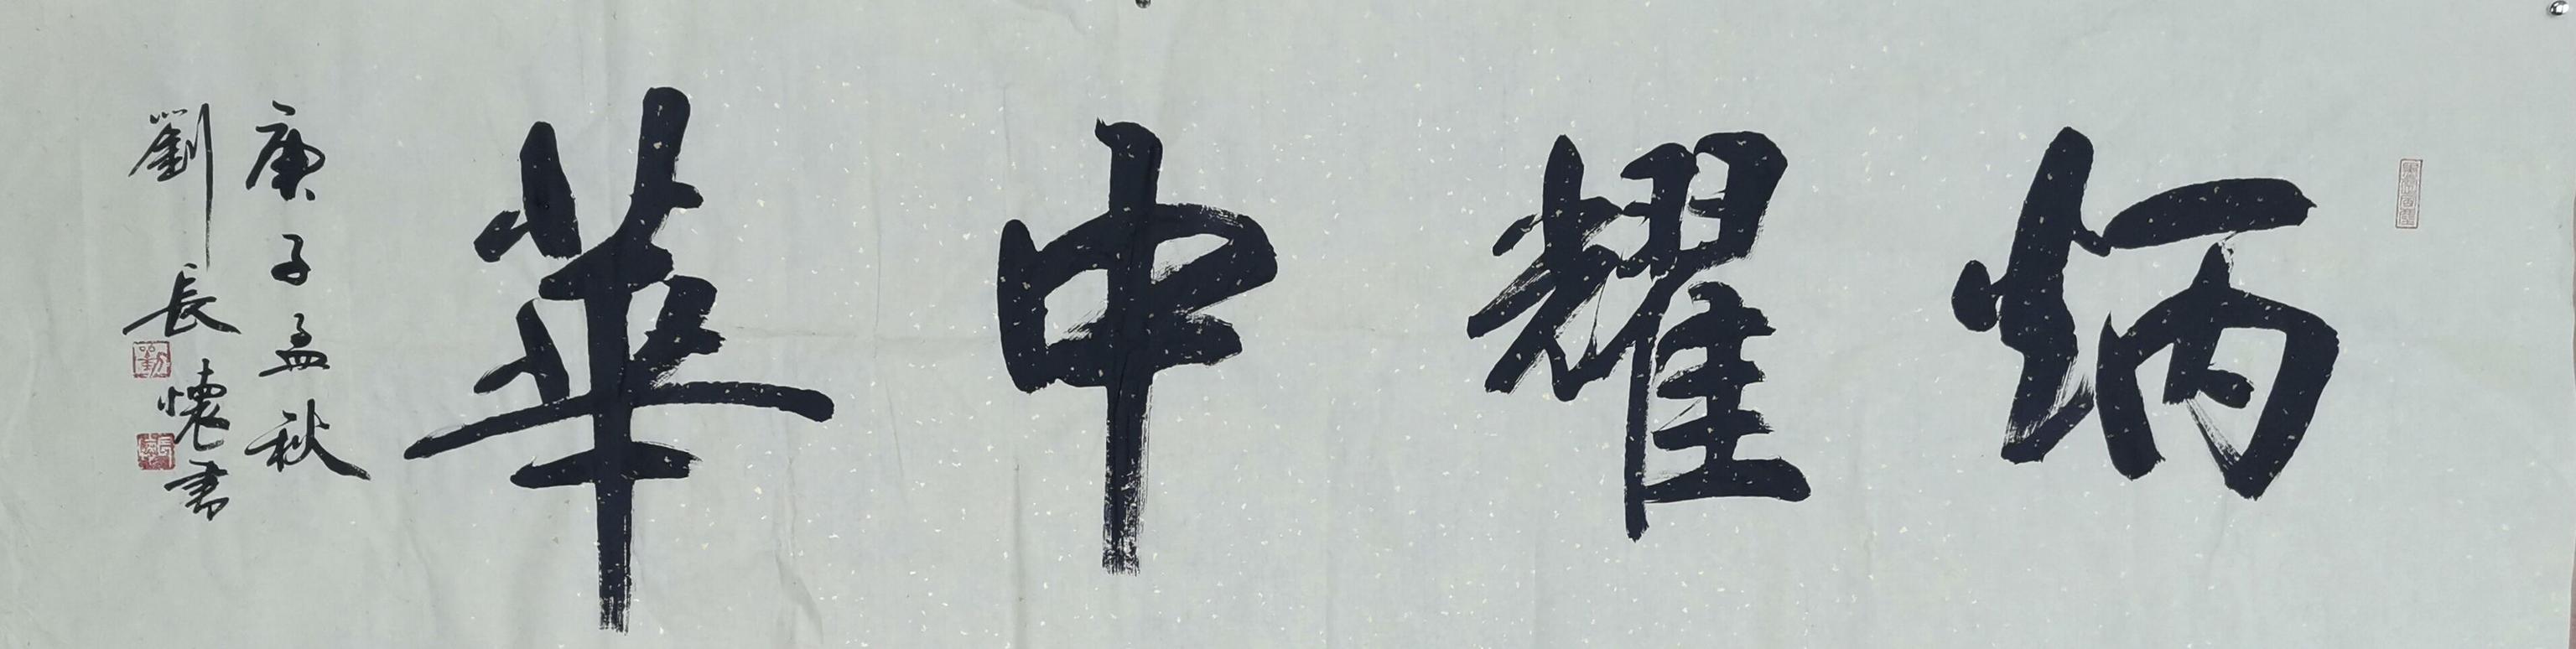 炳耀中華
庚子孟秋
劉長懷書
劉
長懷